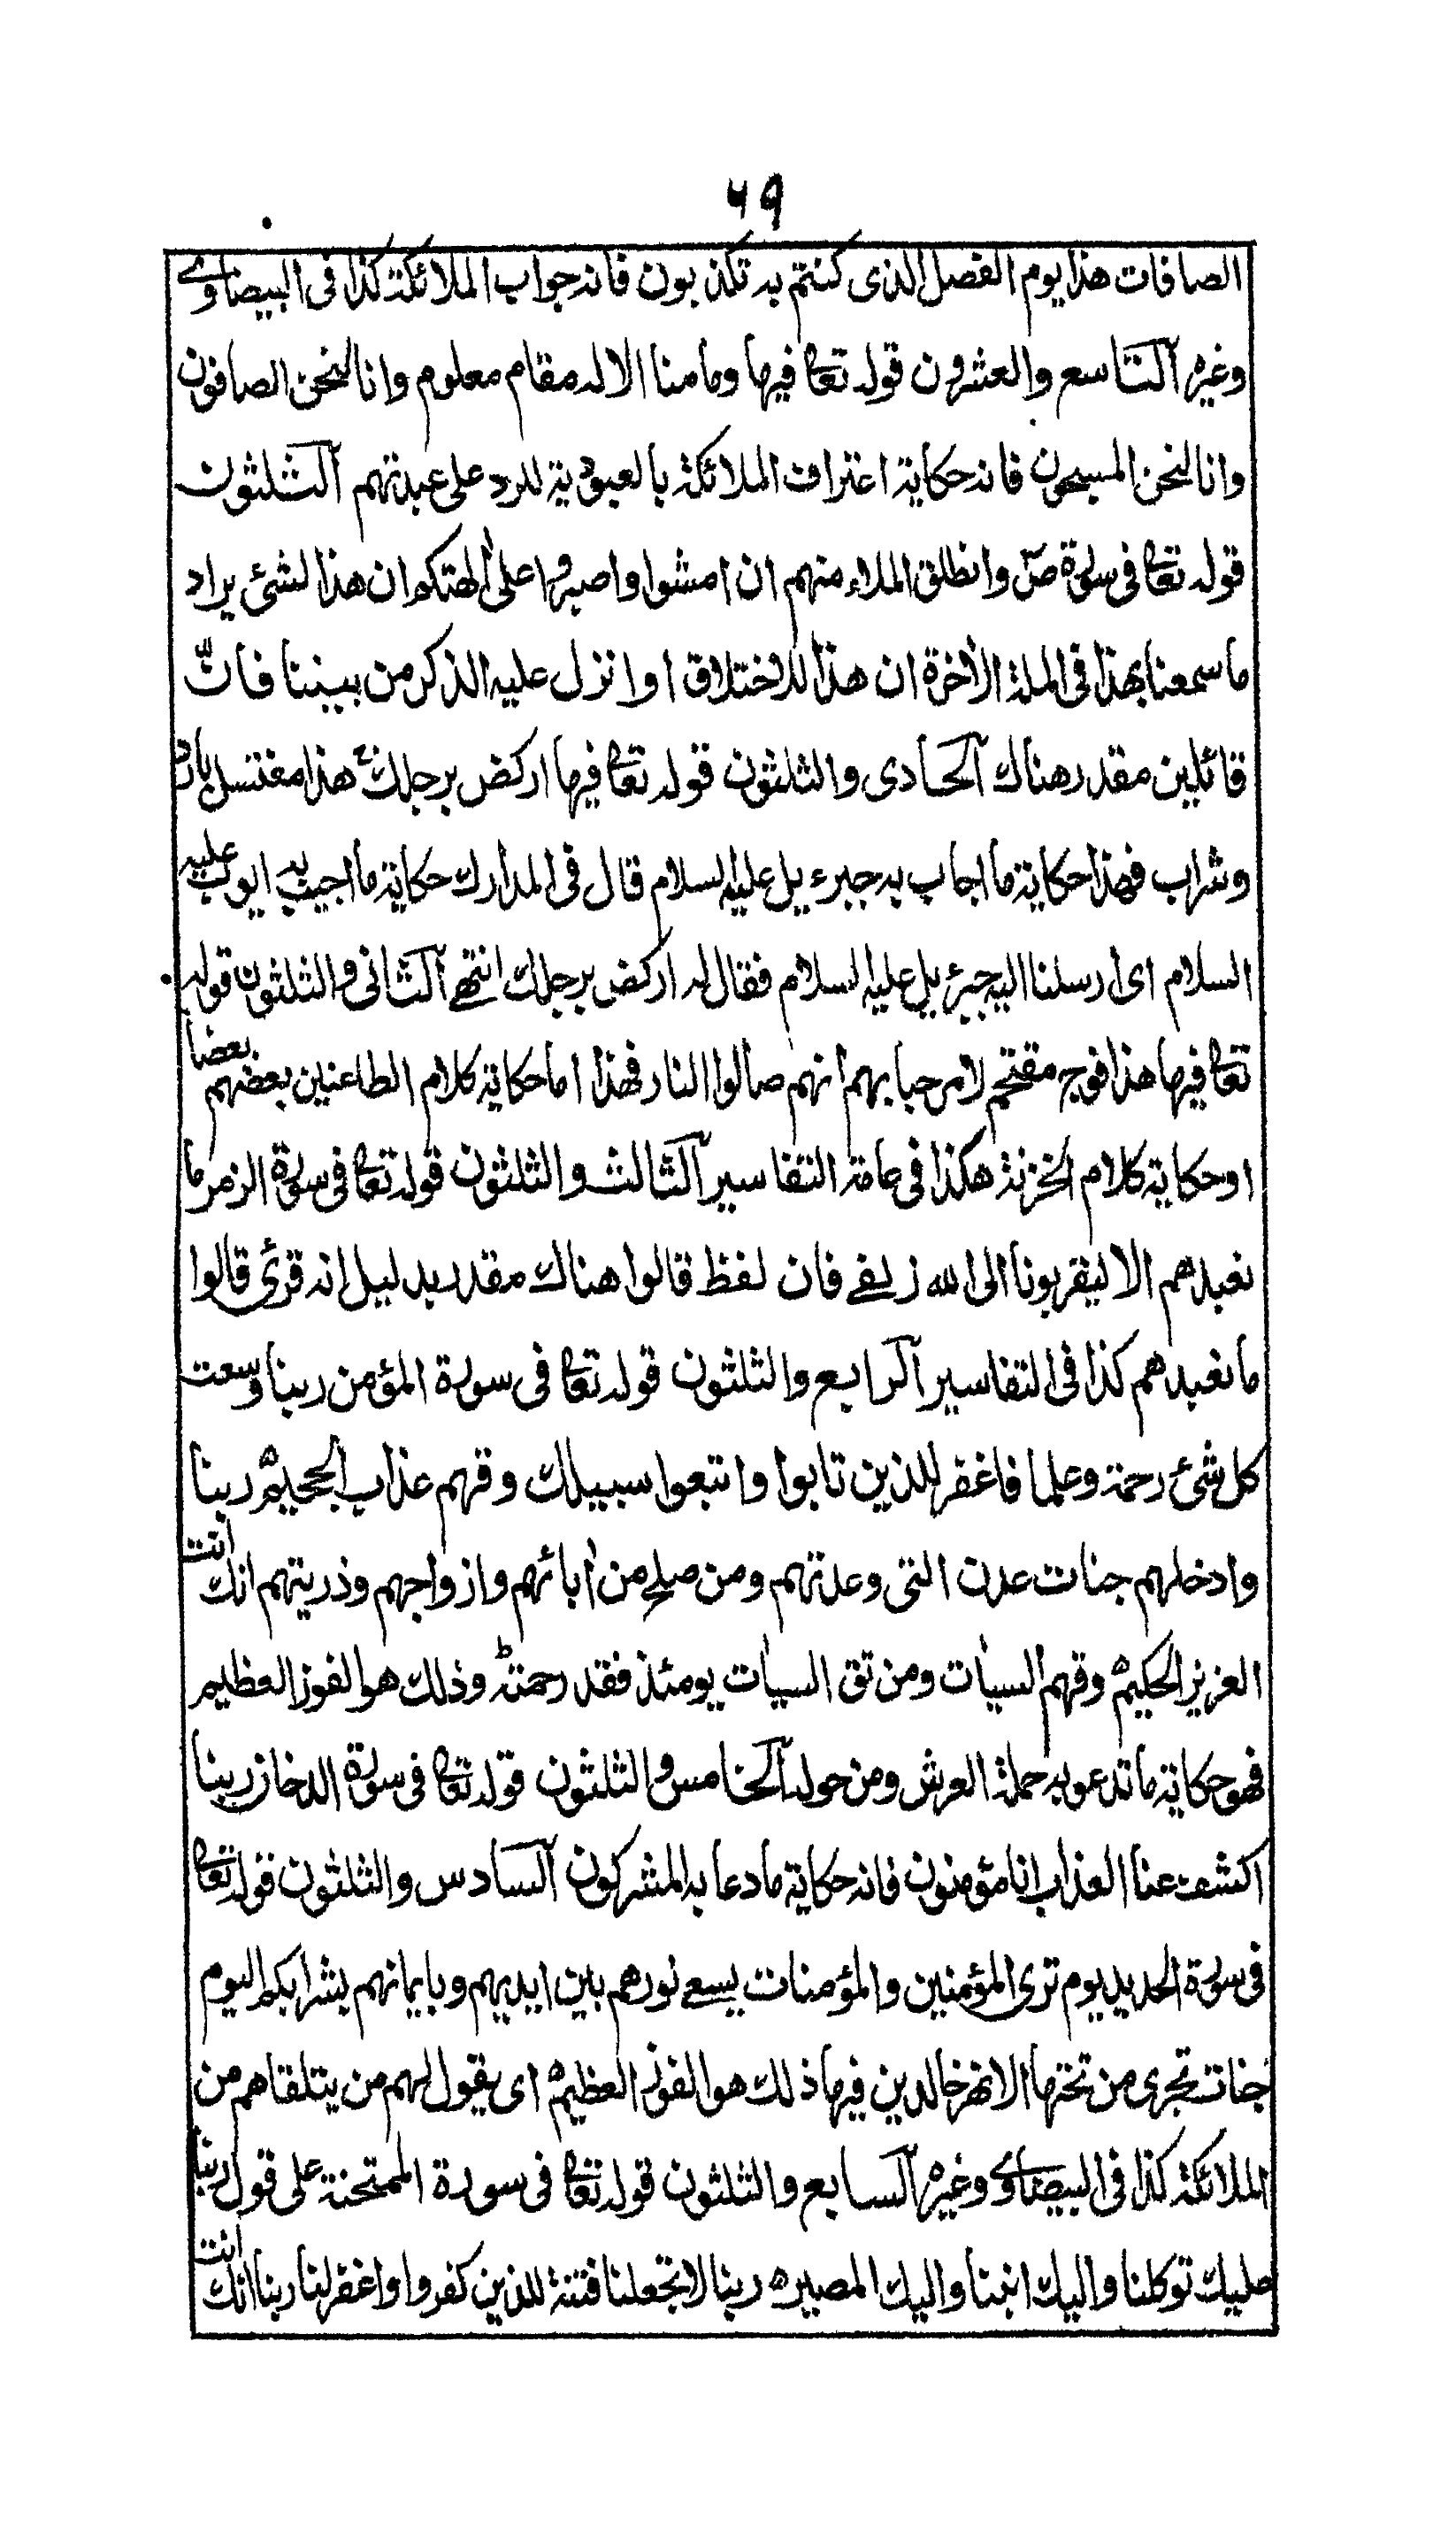 ٦٩
الصافات هذا يوم الفصل الذى كنتم به تكذبون فانه جواب الملائكة كذا فى البيضاوے
وغيره آلتاسع والعشرون قوله تعا فيها ومامنا الا له مقام معلوم وانا لنحن الصافون
وانا لنحن المسبحون فانه حكاية اعتراف الملائكة بالعبودية للرد على عبدتهم آلثلثون
قوله تعا فى سورة صٓ وانطلق الملاء منهم ان امشوا واصبروا على اٰلهتكم ان هذا لشئ يراد
ماسمعنا بهذا فى الملة الاٰخرة ان هذا الا اختلاق اوانزل عليه الذكر من بيننا فانّ
قائلين مقدر هناك آلحادى والثلثون قوله تعا فيها اركض برجلك ج هذا مغتسل بارد
وشراب فهذا حكاية ما اجاب به جبرءيل عليه السلام قال فى المدارك حكاية ما اجيب به ايوب عليه
السلام اى ارسلنا اليه جبرئيل عليه السلام فقال له اركض برجلك انتهے آلثانى والثلثون قوله
تعا فيها هذا فوج مقتحم لامرحبا بهم انهم صالوا النار فهذا اما حكاية كلام الطاعنين بعضهم بعضا
اوحكاية كلام الخزنة هكذا فى عامة التفاسير آلثالث والثلثون قوله تعا فى سورة الزمر ما
نعبدهم الا ليقربونا الى الله زلفے فان لفظ قالوا هناك مقدر بدليل انه قرئ قالوا
مانعبدهم كذا فى التفاسير آلرابع والثلثون قوله تعا فى سورة المؤمن ربنا وسعت
كل شئ رحمة وعلما فاغفر للذين تابوا واتبعوا سبيلك وقهم عذاب الجحيم ربنا
وادخلهم جنات عدن التى وعدتهم ومن صلح من اٰبائهم وازواجهم وذريتهم انك انت
العزيز الحكيم وقهم السيات ومن تق السيات يومئذ فقد رحمته ط وذلك هو الفوز العظيم
فهو حكاية ماتدعو به حملة العرش ومن حوله آلخامس والثلثون قوله تعا فى سورة الدخان ربنا
اكشف عنا العذاب انا مؤمنون فانه حكاية مادعا به المشركون آلسادس والثلثون قوله تعا
فى سورة الحديد يوم ترى المؤمنين والمؤمنات يسعے نورهم بين ايديهم وبايمانهم بشرابكم اليوم
جنات تجرى من تحتها الانهٰر خالدين فيها ذلك هو الفوز العظيم اى يقول لهم من يتلقاهم من
الملائكة كذا فى البيضاوے وغيره آلسابع والثلثون قوله تعا فى سورة الممتحنة على قول ربنا
عليك توكلنا واليك انبنا واليك المصير ه ربنا لا تجعلنا فتنة للذين كفروا واغفر لنا ربنا انك انت